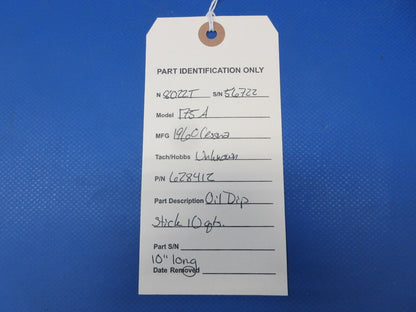 PART IDENTIFICATION ONLY
N 8022T S/N 56722
Model 175A
MFG 1960 Cessna
Tach/Hobbs Unknown
P/N 628412
Part Description Oil Dip
Stick 10 qts.
Part S/N
10" long
Date Removed